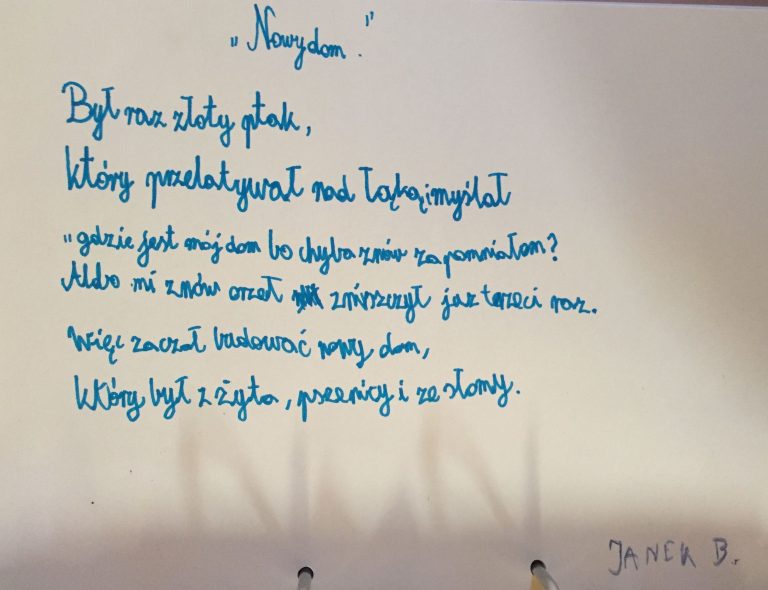 „Nowy dom."
Był raz złoty ptak,
który przelatywał nad łąką i myślał
„gdzie jest mój dom bo chyba znów zapomniałem?
Aldo mi znów orzeł zniszczył już trzeci raz.
Więc zaczął budować nowy dom,
który był z żyta, pszenicy i ze słomy.
JANEK B.